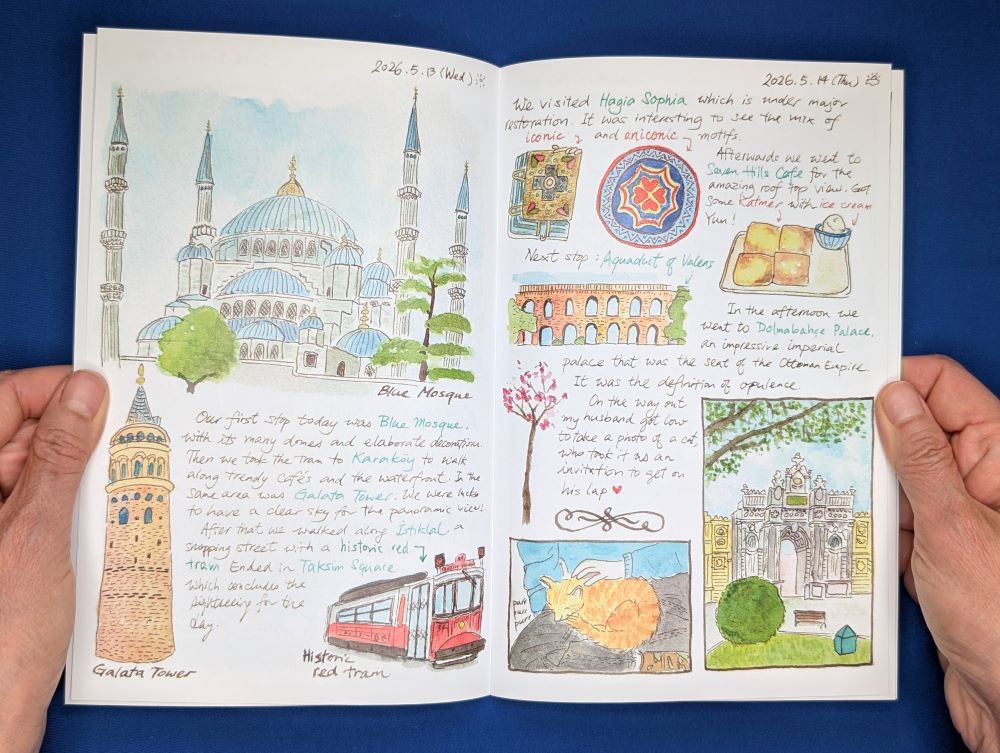 2026.5.13 (Wed)
Blue Mosque
Our first stop today was Blue Mosque,
with its many domes and elaborate decorations.
Then we took the tram to Karaköy to walk
along trendy Cafés and the waterfront. In the
same area was Galata Tower. We were lucky
to have a clear sky for the panoramic view!
After that we walked along İstiklal, a
shopping street with a historic red
tram. Ended in Taksim Square.
Which concludes the
sightseeing for the
day.
Galata Tower
Historic
red tram
2026.5.14 (Thu)
We visited Hagia Sophia which is under major
restoration. It was interesting to see the mix of
iconic and aniconic motifs.
Afterwards we went to
Seven Hills Cafe for the
amazing roof top view. Got
some Katmer with ice cream
Yum!
Next stop: Aquaduct of Valens
In the afternoon we
went to Dolmabahçe Palace,
an impressive imperial
palace that was the seat of the Ottoman Empire.
It was the definition of opulence.
On the way out
my husband got low
to take a photo of a cat,
who took it as an
invitation to get on
his lap ♥
purr
purr
purr